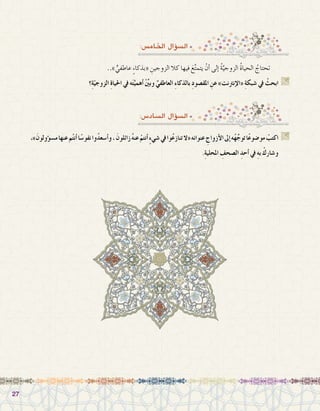 السؤال الخامس
تحتاجُ الحياةُ الزوجيَّةُ إلى أنْ يتمتَّعَ فيها كلا الزوجينِ «بذكاءٍ عاطفيٍّ»..
ابحثْ في شبكةِ «الإنترنت» عنِ المقصودِ بالذكاءِ العاطفيِّ وبَيِّنْ أهميَّتَه في الحياةِ الزوجيَّةِ؟
السؤال السادس
اكتبْ موضوعًا توجِّهُه إلى الأزواجِ عنوانُه «لا تنازَعُوا في شيءٍ أنتُم عنهُ زائلونَ، وأسعدُوا نفوسًا أنتُم عنها مسؤولونَ»،
وشاركْ به في أحدِ الصحفِ المحليةِ.
27